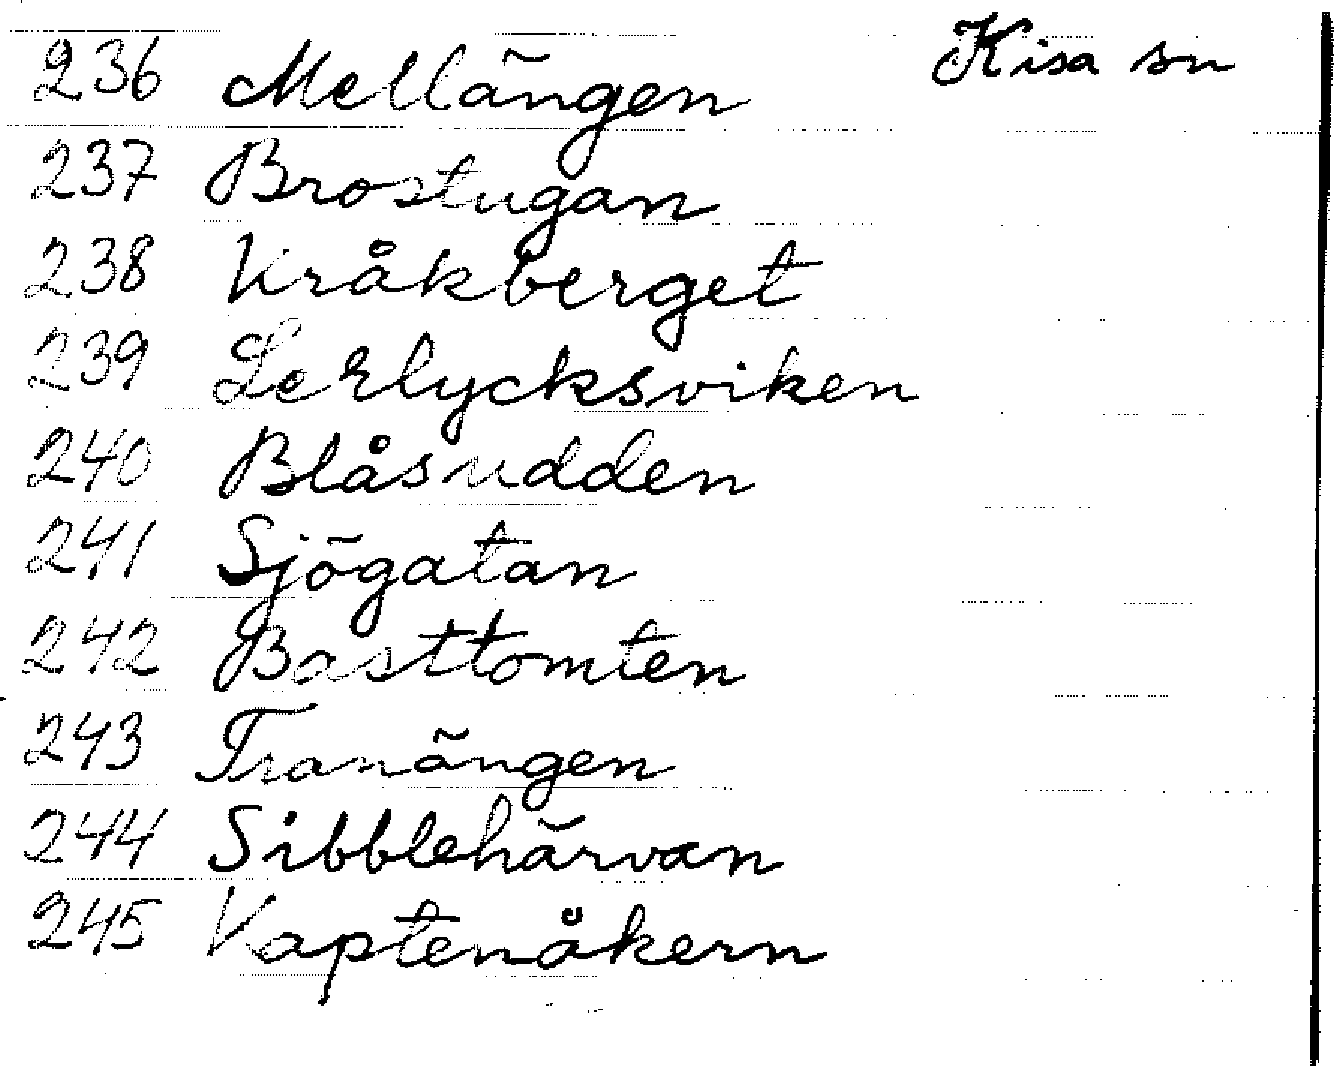 Kisa sn
236 Mellängen
237 Brostugan
238 Kråkberget
239 Lerlycksviken
240 Blåsudden
241 Sjögatan
242 Basttomten
243 Tranängen
244 Sibblehärvan
245 Kaptenåkern